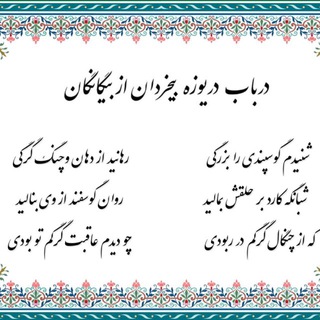 درباب دریوزه بیخردان از بیگانگان
شنیدم گوسپندی را بزرگی رهانید از دهان و چنگ گرگی
شبانگه کارد بر حلقش بمالید روان گوسفند از وی بنالید
که از چنگال گرگم در ربودی چو دیدم عاقبت گرگم تو بودی